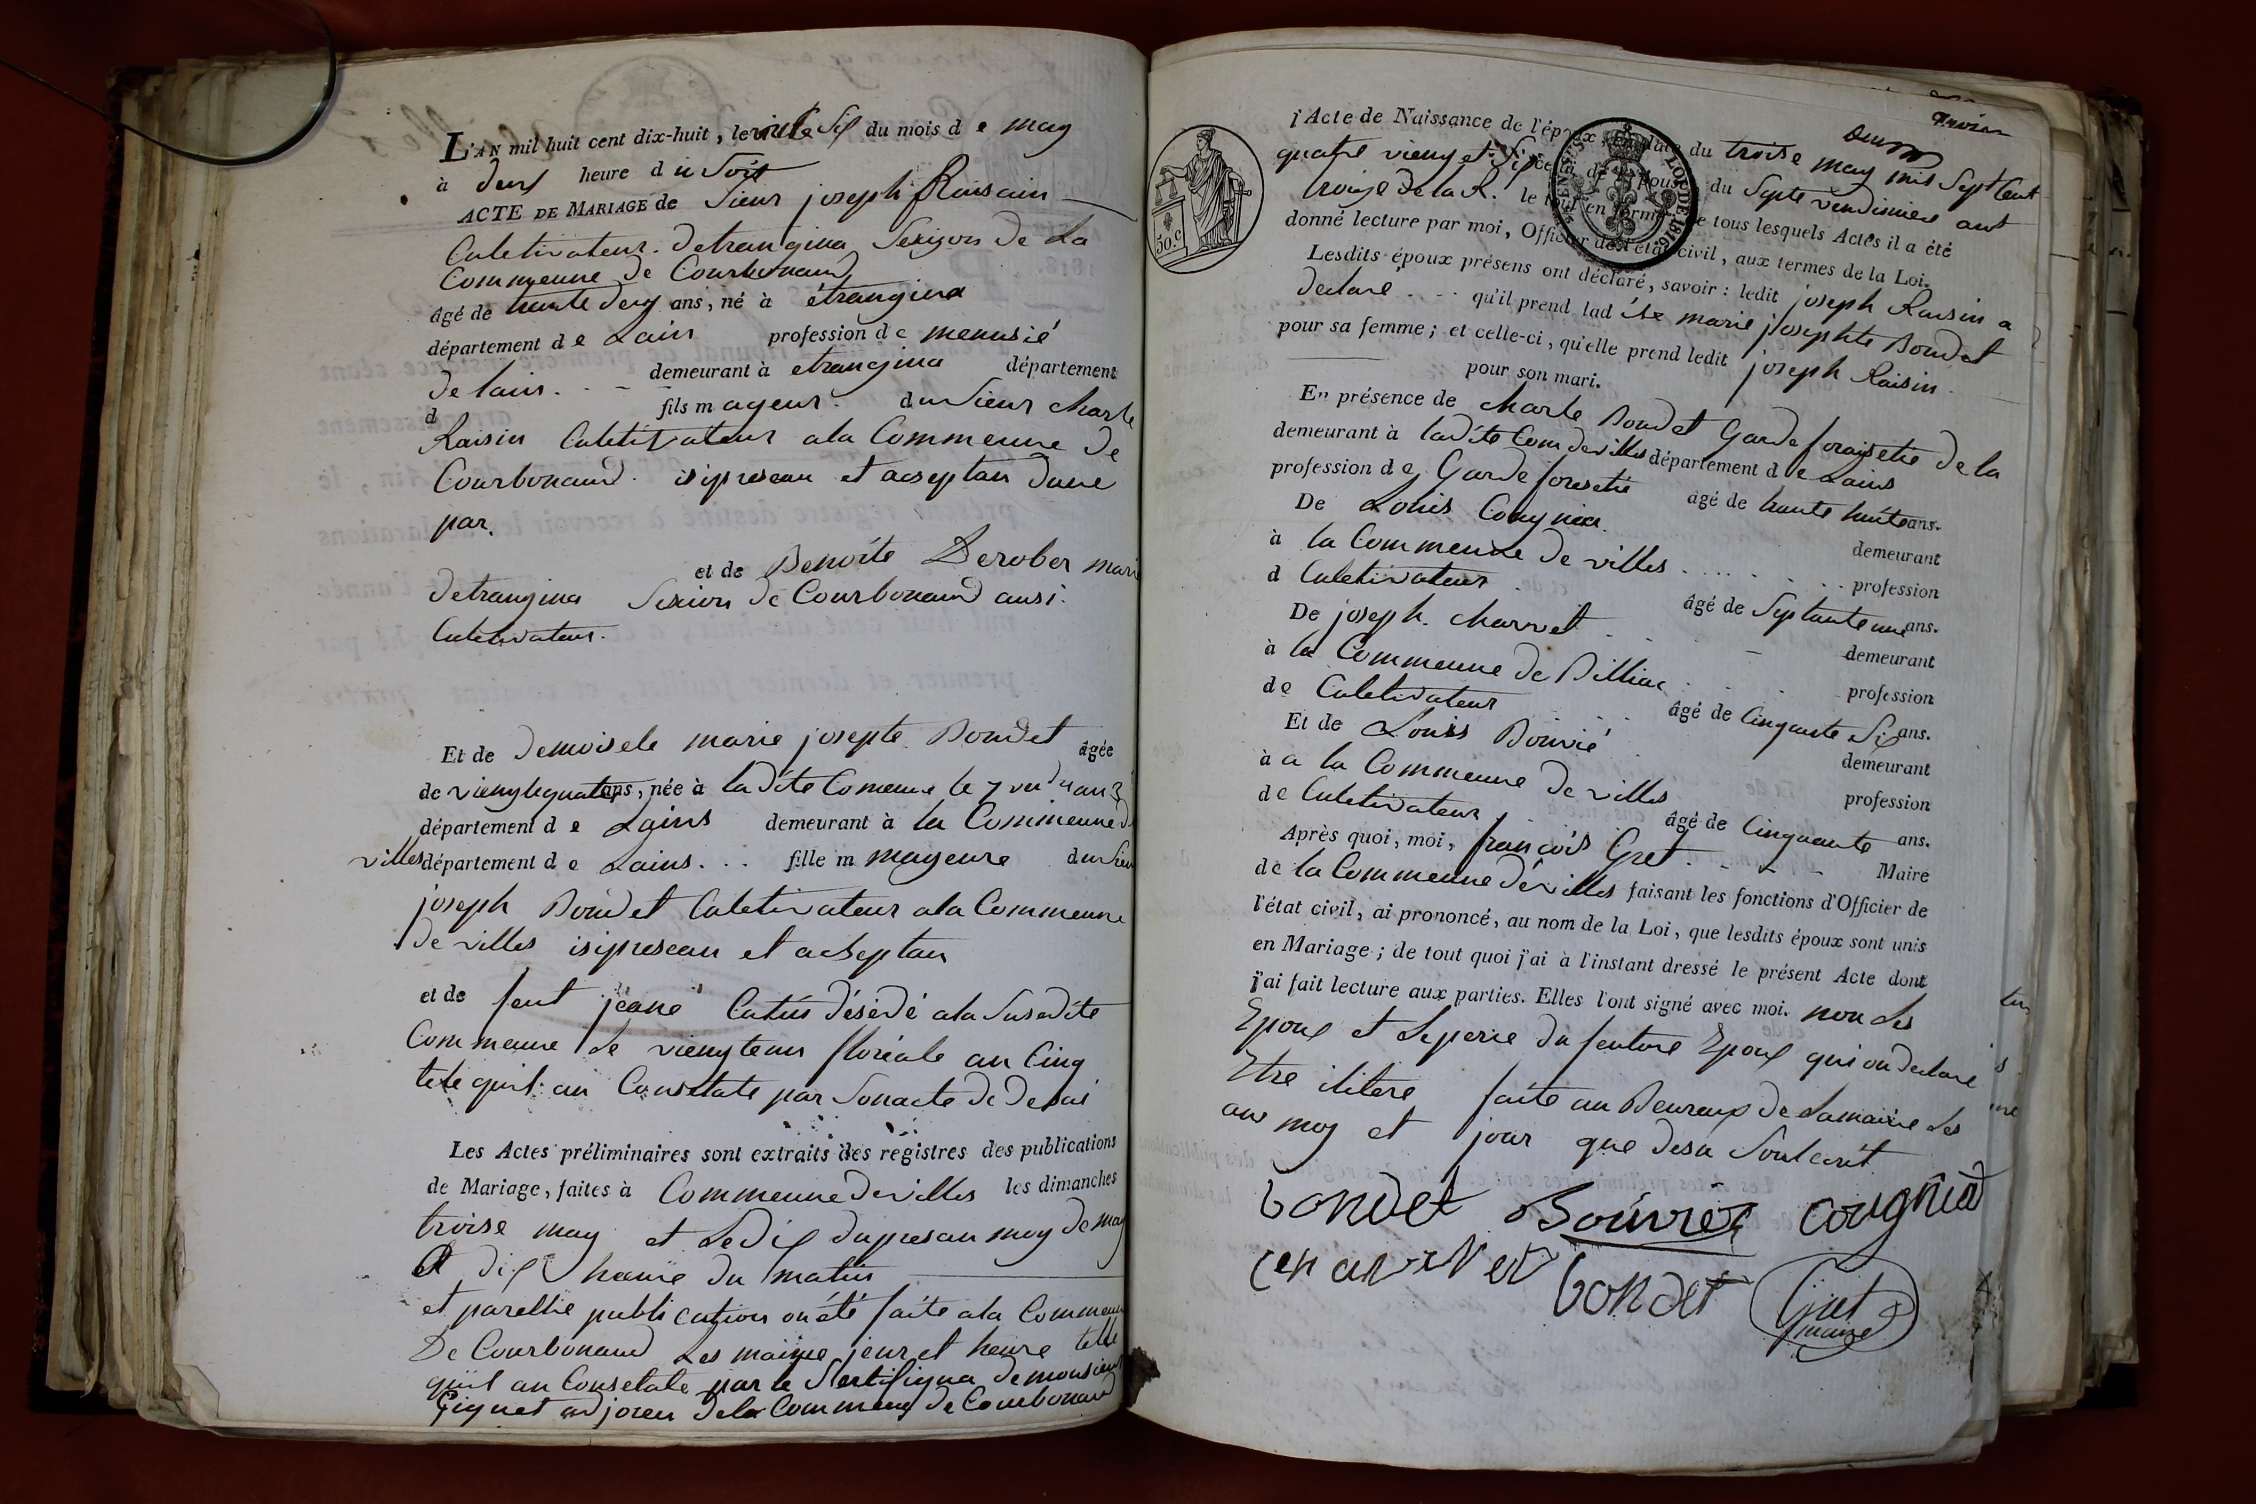 L'AN mil huit cent dix-huit, le vinte Six du mois d e may
à deux heure d u Soir
ACTE DE MARIAGE de Sieur joseph Raisain
Culetivateur. detrangina Sexion de La
Commeune de Courbonaud
âgé de trante deux ans, né à étrangina
département d e Lain profession d e menusié
de lain. demeurant à etrangina département
d fils m ageur. du Sieur charle
Raisin Culetivateur ala Commeune de
Courbonaud. isipresean et acseptan dune
par.
et de Benoite Derober mari
detrangina Sexion de Courbonaud ausi.
Culetivateur.
Et de demoisele marie josepte Bondet âgée
de vienytequatre ans, née à ladite Comeune le 7 an 3
département d e Lains demeurant à la Commeune d
villes département d e Lains. fille m mageure du Sieur
joseph Bondet Culetivateur ala Commeune
de villes isipresean et acseptan
et de feut jeane Catin désédé ala Susedite
Commeune le vienyteun floréale an Cinq
tele quil. an Consetate par Sonacte de desai
Les Actes préliminaires sont extraits des registres des publications
de Mariage, faites à Commeune de villes les dimanches
troise may et Ledix dupresan moy de may
A dix heaure du matin
et parellie publication on été faite ala Commeun
De Courbonaud Les maime jour et heure telle
quil an Consetate par le Sertifiqua de monsieur
Giguet adjoien dela Commeune de Courbonaud
l'Acte de Naissance de l'époux, en date du troise may mil Sept Cent
quatre vieny et Six celui de l'épouse du Septe vendimiere ant
troise de la R. le tout en forme de tous lesquels Actes il a été
donné lecture par moi, Officier de l'état civil, aux termes de la Loi.
30.c
LOI DE 1816.
Lesdits époux présens ont déclaré, savoir : ledit joseph Raisin a
declaré qu'il prend lad ite marie josephte Bondet
pour sa femme; et celle-ci, qu'elle prend ledit joseph Raisin
pour son mari.
En présence de charle Bondet Garde foraisetie de la
demeurant à ladite Com de villes département d e Lains
profession d e Garde foresetié âgé de trante huite ans.
De Louis Cougniat demeurant
à la Commeune de villes profession
d Culetivateur âgé de Septante une ans.
De joseph. charvet demeurant
à la Commeune de Billiac profession
de Culetivateur âgé de Cinquante Six ans.
Et de Louis Bouvié demeurant
à a la Commeune de villes profession
de Culetivateur âgé de Cinquante ans.
Après quoi, moi, françois Gret Maire
de la Commeune de villes faisant les fonctions d'Officier de
l'état civil, ai prononcé, au nom de la Loi, que lesdits époux sont unis
en Mariage; de tout quoi j'ai à l'instant dressé le présent Acte dont
j'ai fait lecture aux parties. Elles l'ont signé avec moi. non Les
Epoux et Leperre du feuture Epoux qui on declare
Etre ilitere faite au Beuraux de Lamairie Les
ans moy et jour que desu Soulecrit
bondet Bouvier cougniat
charvet bondet Gret
maire